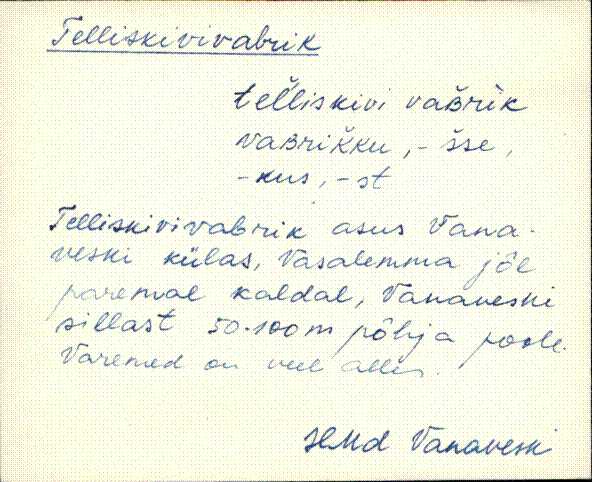 Telliskivivabrik
tel̆liskivi vaʙ̆rìk
vaʙrik̆ku, - s̆se,
-kus, -st
Telliskivivabrik asus Vana-
veski külas, Vasalemma jõe
paremal kaldal, Vanaveski
sillast 50-100m põhja poole.
Varemed on veel alles.
HMd Vanaveski